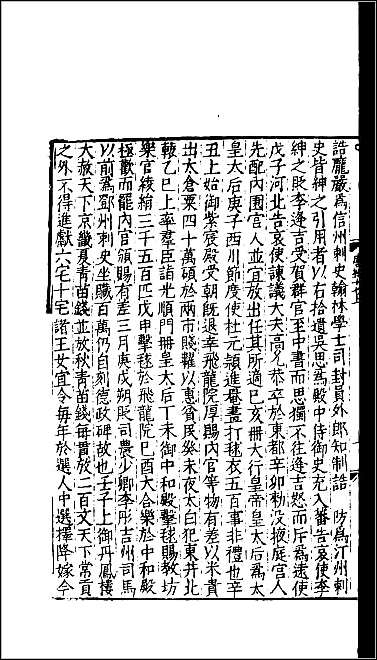 誥龐嚴為信州刺史翰林學士司封員外郎知制誥　防為汀州刺
史皆紳之引用者以右拾遺吳思為殿中侍御史充入蕃告哀使李
紳之貶李逢吉受賀群官至中書而思獨不往逢吉怒而斥為遠使
戊子河北告哀使諫議大夫高允恭卒於東都辛卯勅沒掖庭宮人
先配內園宮人並宜放出任其所適己亥冊大行皇帝皇太后為太
皇太后庚子西川節度使杜元頴進罨畫打毬衣五百事非禮也辛
丑上始御紫宸殿受朝既退幸飛龍院厚賜內官等物有差以米貴
出太倉粟四十萬碩於兩市賤糶以惠貧民癸未夜太白犯東井北
轅乙巳上率羣臣詣光順門冊皇太后丁未御中和殿擊毬賜教坊
樂官綾絹三千五百匹戊申擊毬於飛龍院己酉大合樂於中和殿
極歡而罷內官頒賜有差三月庚戌朔貶司農少卿李彤吉州司馬
以前為鄧州刺史坐贓百萬仍自刻德政碑故也壬子上御丹鳳樓
大赦天下京畿夏青苗錢並放秋青苗錢每貫放二百文天下常貢
之外不得進獻六宅十宅諸王女宜令每年於選人中選擇降嫁今